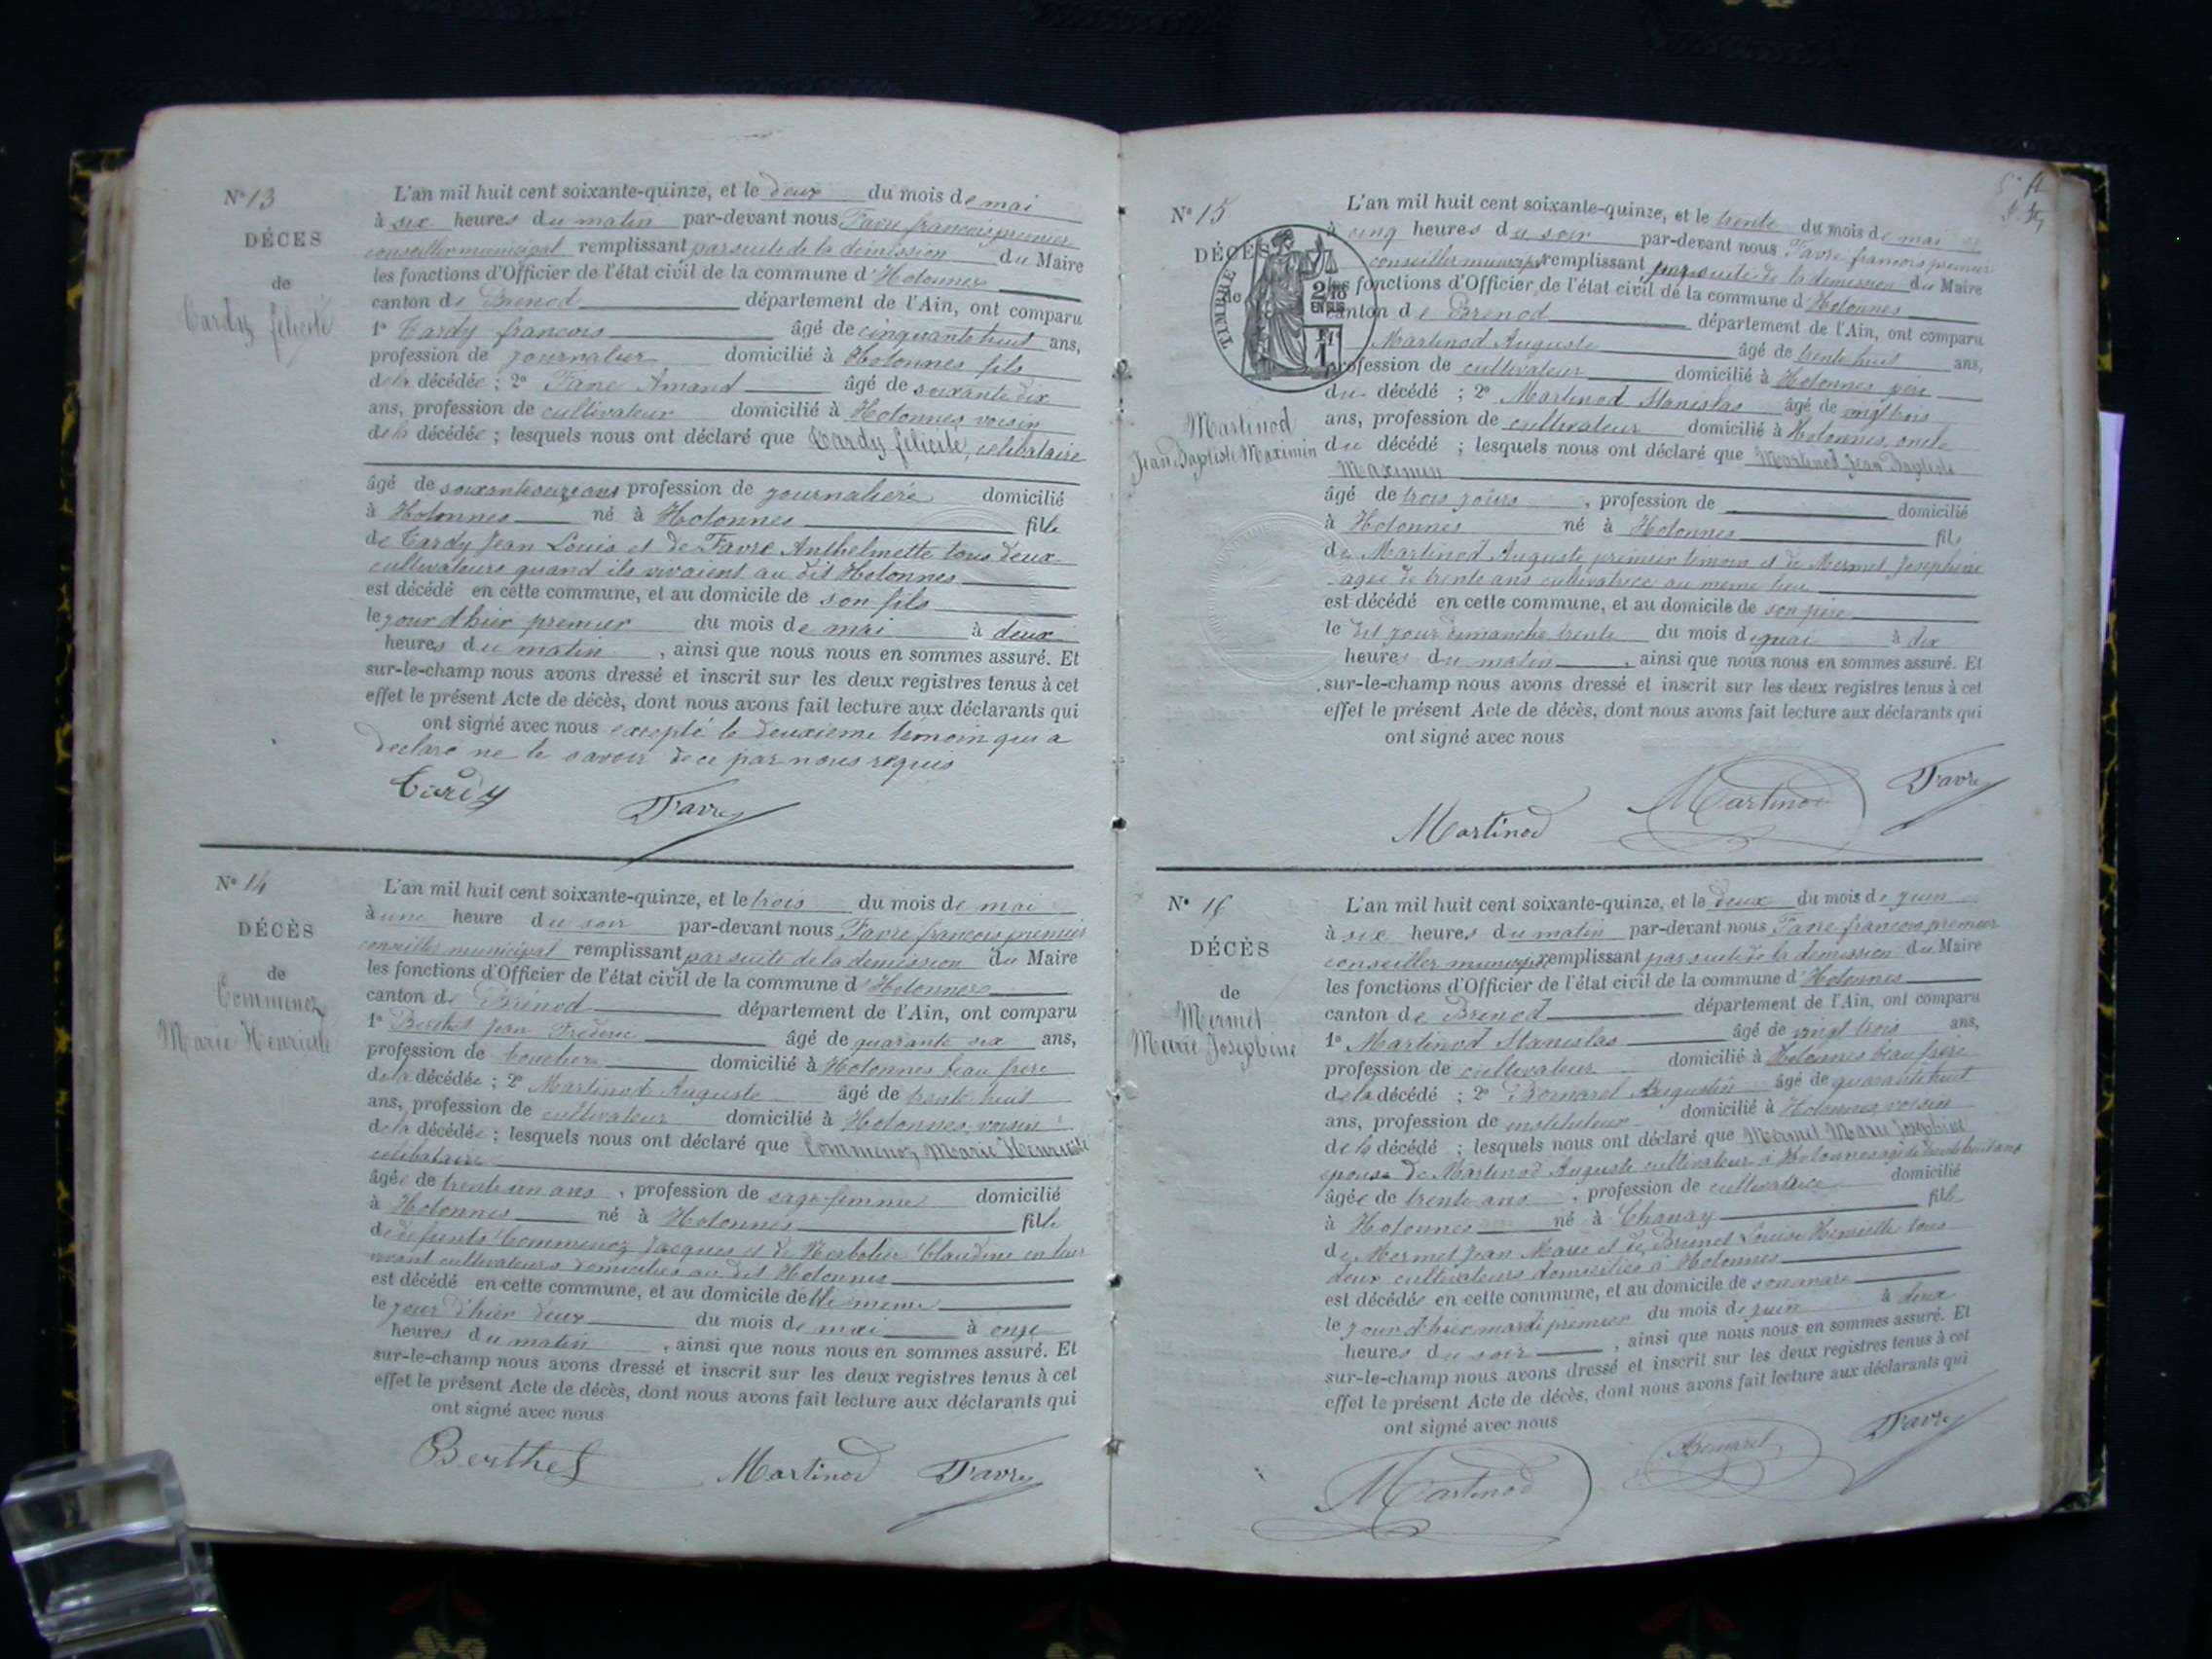 N° 13
DÉCES
de
Tardy félicité
L'an mil huit cent soixante-quinze, et le deux du mois de mai
à six heures du matin par-devant nous Favre françois premier
conseiller municipal remplissant par suite de la démission du Maire
les fonctions d'Officier de l'état civil de la commune d'Hotonnes
canton de Brenod département de l'Ain, ont comparu
1° Tardy francois âgé de cinquante huit ans,
profession de journalier domicilié à Hotonnes fils
de la décédée ; 2° Favre Amand âgé de soixante dix
ans, profession de cultivateur domicilié à Hotonnes voisin
de la décédée ; lesquels nous ont déclaré que Tardy félicité, célibataire
âgé de soixante seize ans profession de journalière domicilié
à Hotonnes né à Hotonnes fille
de Tardy Jean Louis et de Favre Anthelmette tous deux
cultivateurs quand ils vivaient au dit Hotonnes
est décédé en cette commune, et au domicile de son fils
le jour d'hier premier du mois de mai à deux
heures du matin , ainsi que nous nous en sommes assuré. Et
sur-le-champ nous avons dressé et inscrit sur les deux registres tenus à cet
effet le présent Acte de décès, dont nous avons fait lecture aux déclarants qui
ont signé avec nous excepté le deuxieme témoin qui a
déclaré ne le savoir de ce par nous requis
Tardy Favre
N° 14
DÉCÈS
de
Commenoz
Marie Henriette
L'an mil huit cent soixante-quinze, et le trois du mois de mai
à une heure du soir par-devant nous Favre francois premier
conseiller municipal remplissant par suite de la demission du Maire
les fonctions d'Officier de l'état civil de la commune d'Hotonnes
canton de Brénod département de l'Ain, ont comparu
1° Berthet Jean Frédéric âgé de quarante six ans,
profession de boucher domicilié à Hotonnes beau frère
de la décédée ; 2° Martinod Auguste âgé de trente huit
ans, profession de cultivateur domicilié à Hotonnes, voisin
de la décédée ; lesquels nous ont déclaré que Commenoz Marie Henriette
célibataire
âgée de trente un ans , profession de sage femme domicilié
à Hotonnes né à Hotonnes fille
de defunts Commenoz Jacques et de Herbolier Claudine en leur
vivant cultivateurs domiciliés au dit Hotonnes
est décédé en cette commune, et au domicile d'elle meme
le jour d'hier deux du mois de mai à onze
heures du matin , ainsi que nous nous en sommes assuré. Et
sur-le-champ nous avons dressé et inscrit sur les deux registres tenus à cet
effet le présent Acte de décès, dont nous avons fait lecture aux déclarants qui
ont signé avec nous
Berthet Martinod Favre
N° 15
DÉCÈS
de
TIMBRE
EN SUS
Martinod
Jean Baptiste Maximin
L'an mil huit cent soixante-quinze, et le trente du mois de mai
à cinq heures du soir par-devant nous Favre francois premier
conseiller municipal remplissant par suite de la demission du Maire
les fonctions d'Officier de l'état civil de la commune d'Hotonnes
canton de Brenod département de l'Ain, ont comparu
Martinod Auguste âgé de trente huit ans,
profession de cultivateur domicilié à Hotonnes père
du décédé ; 2° Martinod Stanislas âgé de vingt trois
ans, profession de cultivateur domicilié à Hotonnes, oncle
du décédé ; lesquels nous ont déclaré que Martinod Jean Baptiste
Maximin
âgé de trois jours , profession de domicilié
à Hotonnes né à Hotonnes fils
de Martinod Auguste premier témoin et de Mermet Josephine
agée de trente ans cultivatrice au meme lieu
est décédé en cette commune, et au domicile de son père
le dit jour dimanche trente du mois de mai à dix
heures du matin , ainsi que nous nous en sommes assuré. Et
sur-le-champ nous avons dressé et inscrit sur les deux registres tenus à cet
effet le présent Acte de décès, dont nous avons fait lecture aux déclarants qui
ont signé avec nous
Martinod Martinod Favre
N° 16
DÉCÈS
de
Mermet
Marie Josephine
L'an mil huit cent soixante-quinze, et le deux du mois de juin
à six heures du matin par-devant nous Favre francois premier
conseiller municipal remplissant par suite de la demission du Maire
les fonctions d'Officier de l'état civil de la commune d'Hotonnes
canton de Brenod département de l'Ain, ont comparu
1° Martinod Stanislas âgé de vingt trois ans,
profession de cultivateur domicilié à Hotonnes beau frère
de la décédé ; 2° Bornarel Augustin âgé de quarante huit
ans, profession de instituteur domicilié à Hotonnes voisin
de la décédé ; lesquels nous ont déclaré que Mermet Marie Josephine
épouse de Martinod Auguste cultivateur à Hotonnes agé de trente huit ans
âgée de trente ans , profession de cultivatrice domicilié
à Hotonnes né à Chanay fille
de Mermet Jean Marie et de Brunet Louise Henriette tous
deux cultivateurs domiciliés à Hotonnes
est décédée en cette commune, et au domicile de son mari
le jour d'hier mardi premier du mois de juin à deux
heures du soir , ainsi que nous nous en sommes assuré. Et
sur-le-champ nous avons dressé et inscrit sur les deux registres tenus à cet
effet le présent Acte de décès, dont nous avons fait lecture aux déclarants qui
ont signé avec nous
Martinod Bornarel Favre